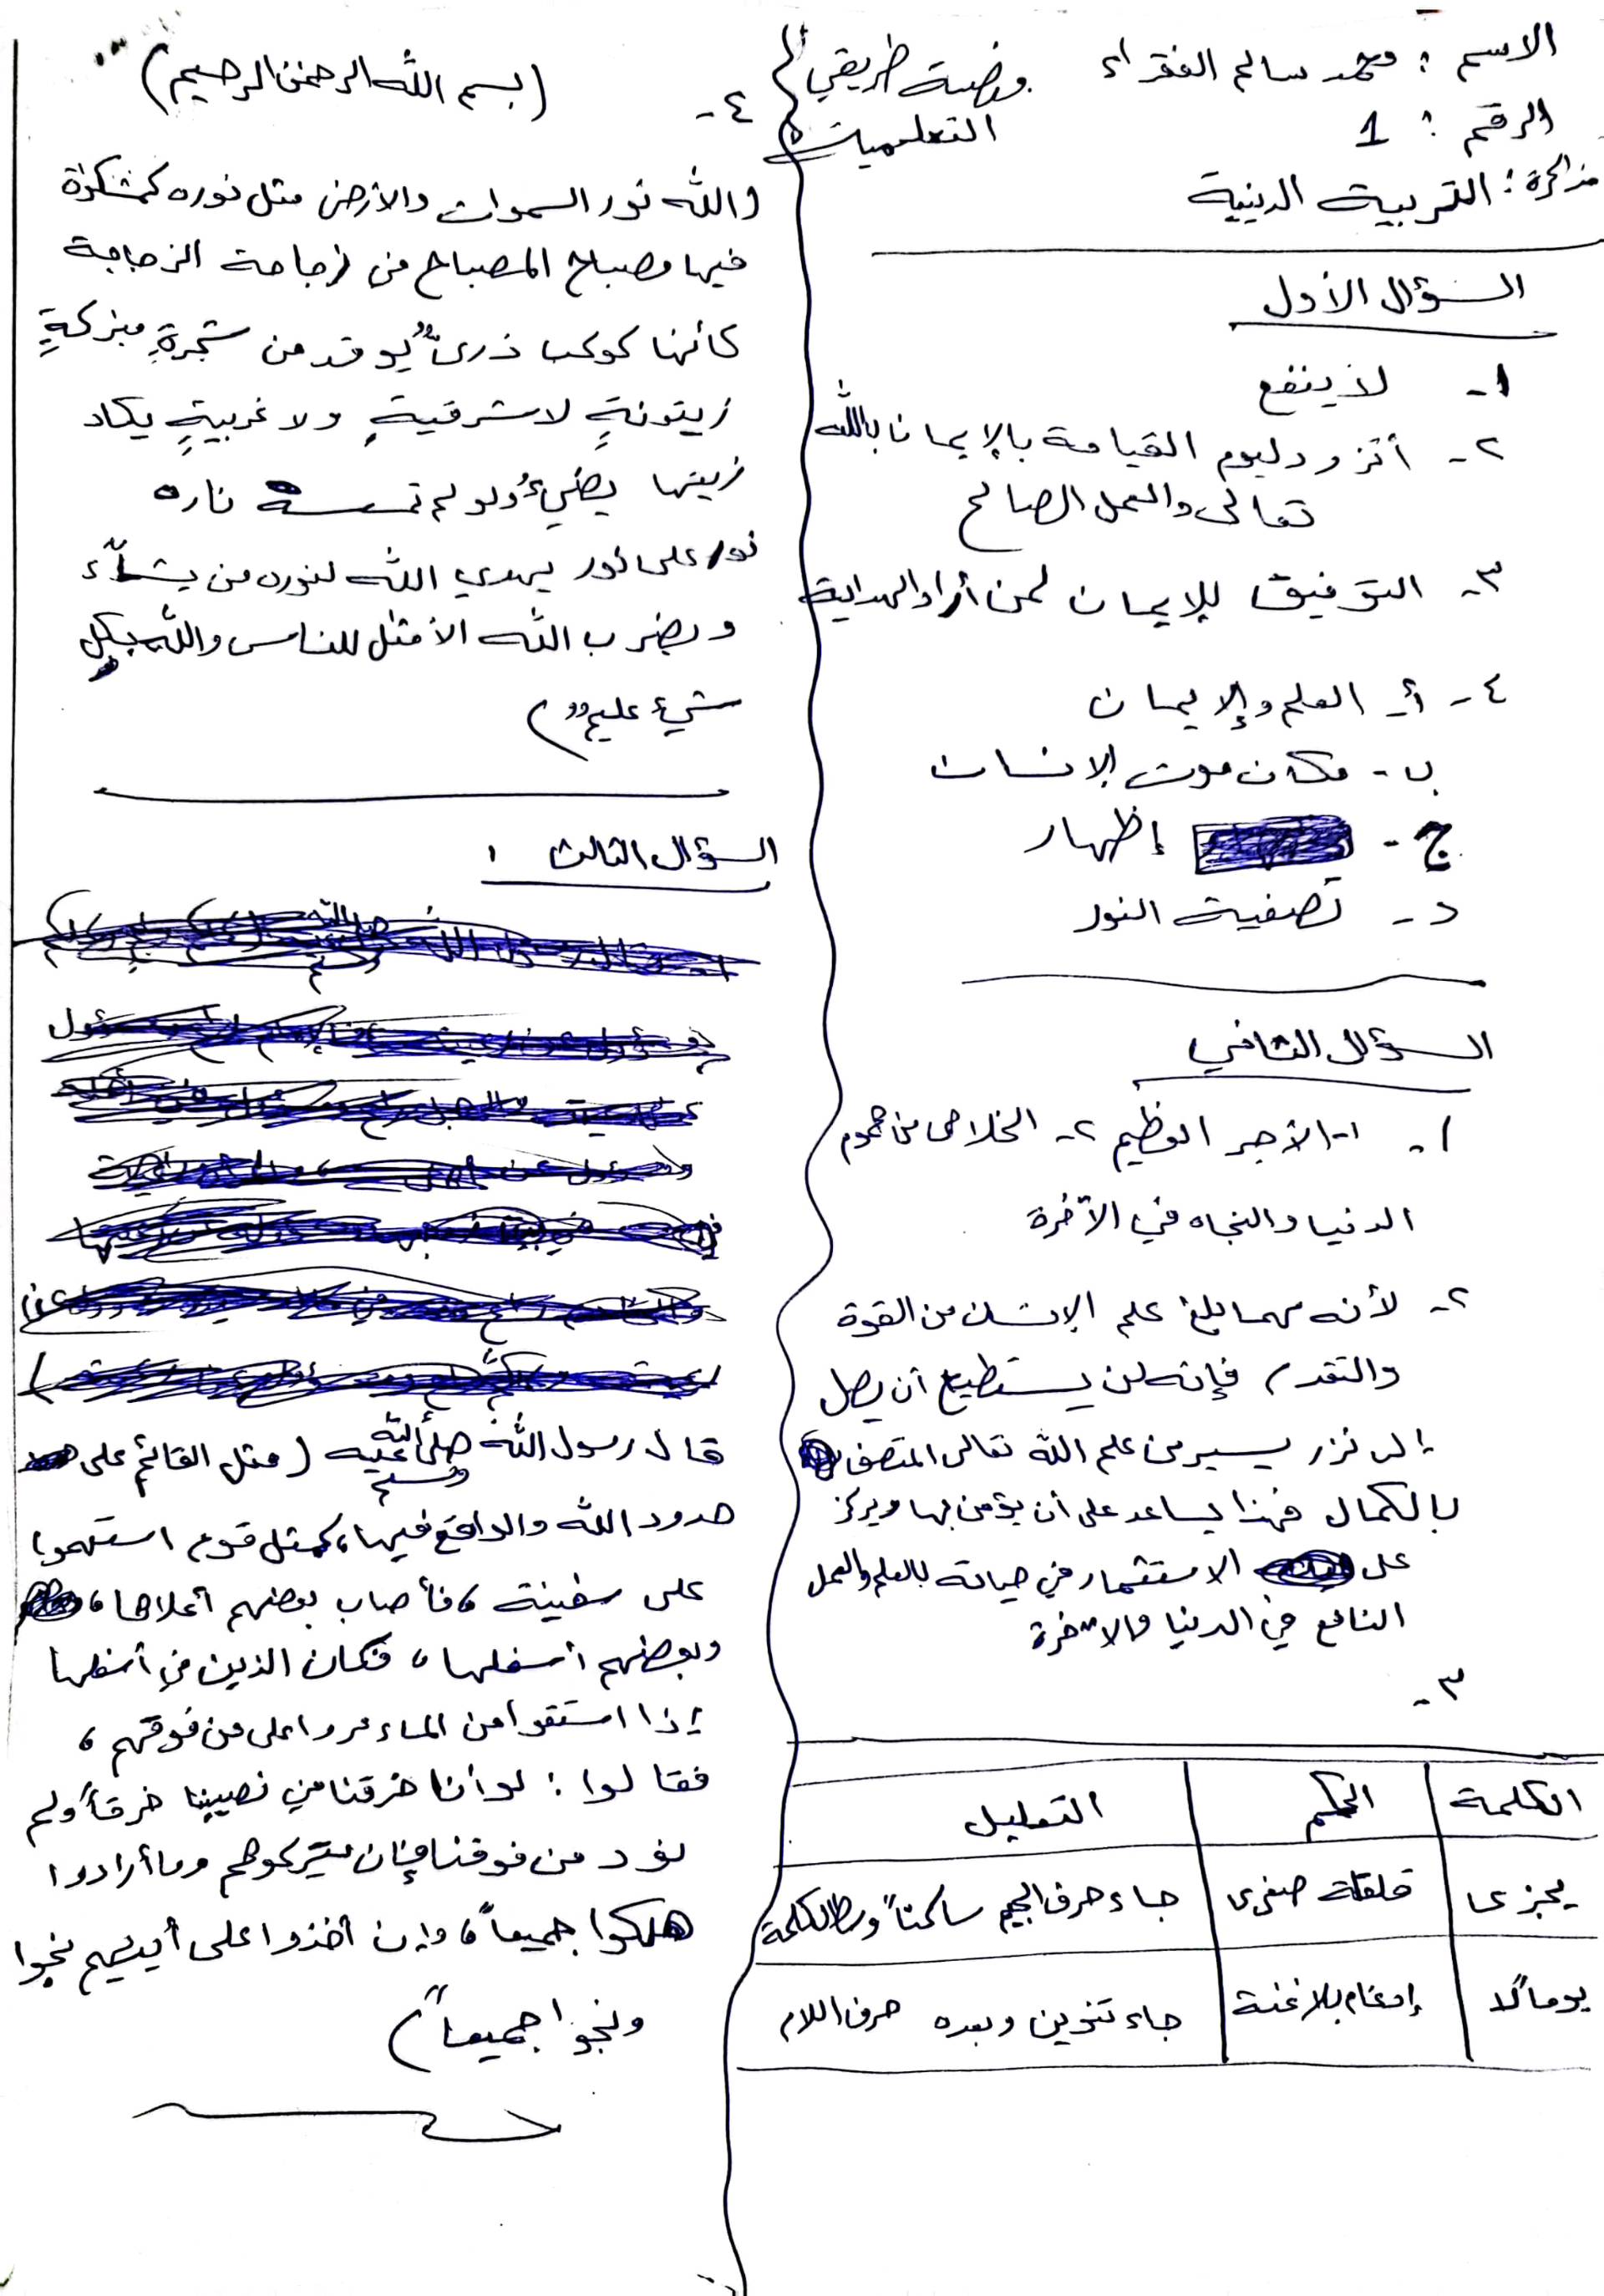 الاسم : محمد سالم الفقراء
الرقم : 1
مذاكرة : التربية الدينية
منصة طريقي
التعلمية
السؤال الأول
١- لا ينفع
٢- أتزود ليوم القيامة بالإيمان بالله
تعالى والعمل الصالح
٣- التوفيق للإيمان لمن أراد الهداية
٤- أ- العلم والإيمان
ب- مكان موت الإنسان
ج- إظهار
د- تصفية النور
السؤال الثاني
١- ١- الأجر العظيم ٢- الخلاص من هموم
الدنيا والنجاه في الآخرة
٢- لأنه مهما بلغ علم الإنسان من القوة
والتقدم فإنه لن يستطيع أن يصل
إلى نزر يسير من علم الله تعالى المتصف
بالكمال فهذا يساعد على أن يؤمن بها ويركز
على الاستثمار في حياته بالعلم والعمل
النافع في الدنيا والآخرة
٣-
الكلمة الحكم التعليل
يجزى قلقلة صغرى جاء حرف الجيم ساكناً وسط الكلمة
يوماً لا إدغام بلا غنة جاء تنوين وبعده حرف اللام
٤- (بسم الله الرحمن الرحيم)
(الله نور السموات والأرض مثل نوره كمشكوٰة
فيها مصباح المصباح في زجاجة الزجاجة
كأنها كوكب درىٌّ يوقد من شجرةٍ مبٰركةٍ
زيتونةٍ لا شرقيةٍ ولا غربيةٍ يكاد
زيتها يضيءُ ولو لم تمسسه ناره
نور على نور يهدي الله لنوره من يشآء
ويضرب الله الأمثل للناس والله بكل
شيء عليم)
السؤال الثالث :
قال رسول الله صلى الله عليه وسلم (مثل القائم على
حدود الله والواقع فيها، كمثل قوم استهموا
على سفينة، فأصاب بعضهم أعلاها،
وبعضهم أسفلها، فكان الذين في أسفلها
إذا استقوا من الماء مروا على من فوقهم،
فقالوا : لو أنا خرقنا في نصيبنا خرقاً ولم
نؤذ من فوقنا فإن يتركوهم وما أرادوا
هلكوا جميعاً، وإن أخذوا على أيديهم نجوا
ونجوا جميعاً)